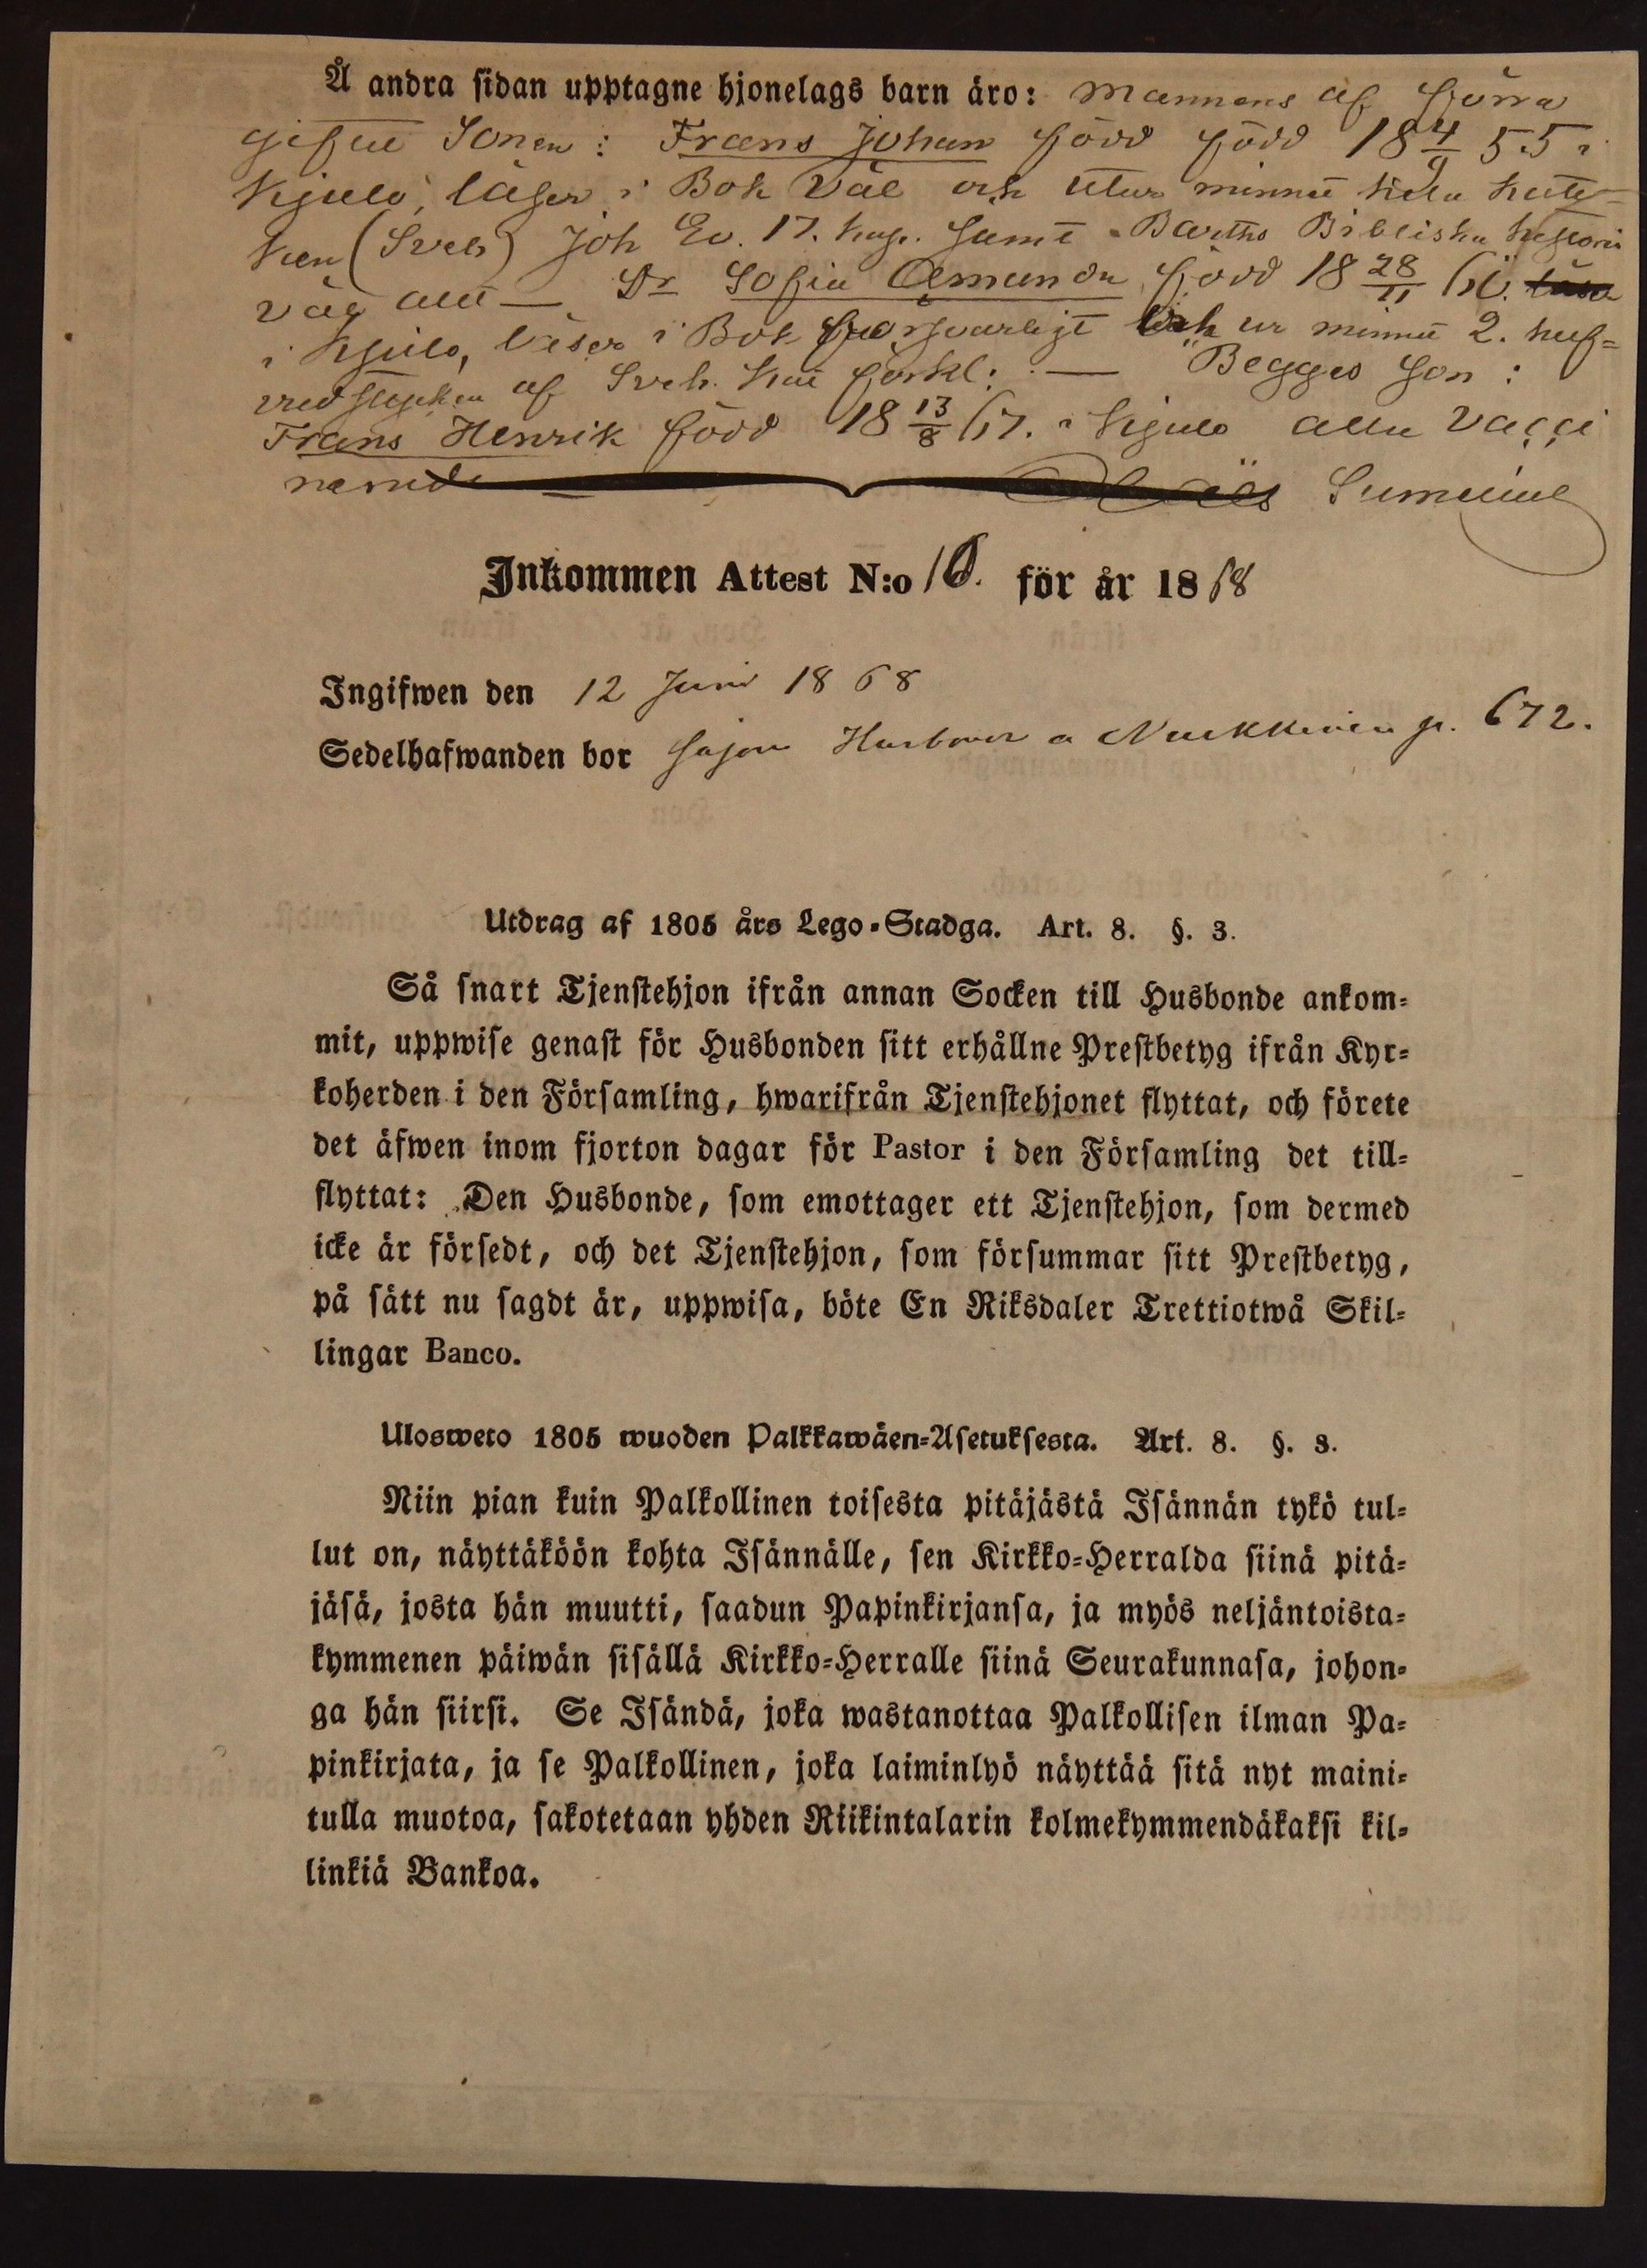 Å andra sidan upptagne hjonelags barn äro: Mannens af förra
giftet Sonen: Frans Johan född född 18 4/9 55 i
Kjulo, läser i Bok väl och utur minnet hela kate-
ken (Sveb) Joh Ev. 17. kap. samt Barths Bibliska historia
väl allt — Dr Sofia Amanda född 18 28/11 60. läsa
i Kjulo, läser i Bok försvarligt och ur minnet 2. huf-
vudstycken af Sveb. Kat förkl: — Begges son:
Frans Henrik född 18 13/8 67. i Kjulo alla vacci
nerade
Inkommen Attest N:o 10. för år 1868
Ingifwen den 12 Juni 1868
Sedelhafwanden bor p. 672.
Utdrag af 1805 års Lego-Stadga. Art. 8. §. 3.
Så snart Tjenstehjon ifrån annan Socken till Husbonde ankom-
mit, uppwise genast för Husbonden sitt erhållne Prestbetyg ifrån Kyr-
koherden i den Församling, hwarifrån Tjenstehjonet flyttat, och förete
det äfwen inom fjorton dagar för Pastor i den Församling det till-
flyttat: Den Husbonde, som emottager ett Tjenstehjon, som dermed
icke är försedt, och det Tjenstehjon, som försummar sitt Prestbetyg,
på sätt nu sagdt är, uppwisa, böte En Riksdaler Trettiotwå Skil-
lingar Banco.
Ulosweto 1805 wuoden Palkkawäen-Asetuksesta. Art. 8. §. 3.
Niin pian kuin Palkollinen toisesta pitäjästä Isännän tykö tul-
lut on, näyttäköön kohta Isännälle, sen Kirkko-Herralda siinä pitä-
jäsä, josta hän muutti, saadun Papinkirjansa, ja myös neljäntoista-
kymmenen päiwän sisällä Kirkko-Herralle siinä Seurakunnasa, johon-
ga hän siirsi. Se Isändä, joka wastanottaa Palkollisen ilman Pa-
pinkirjata, ja se Palkollinen, joka laiminlyö näyttää sitä nyt maini-
tulla muotoa, sakotetaan yhden Riikintalarin kolmekymmendäkaksi kil-
linkiä Bankoa.